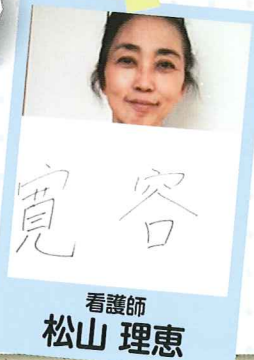 寛容
看護師
松山 理恵